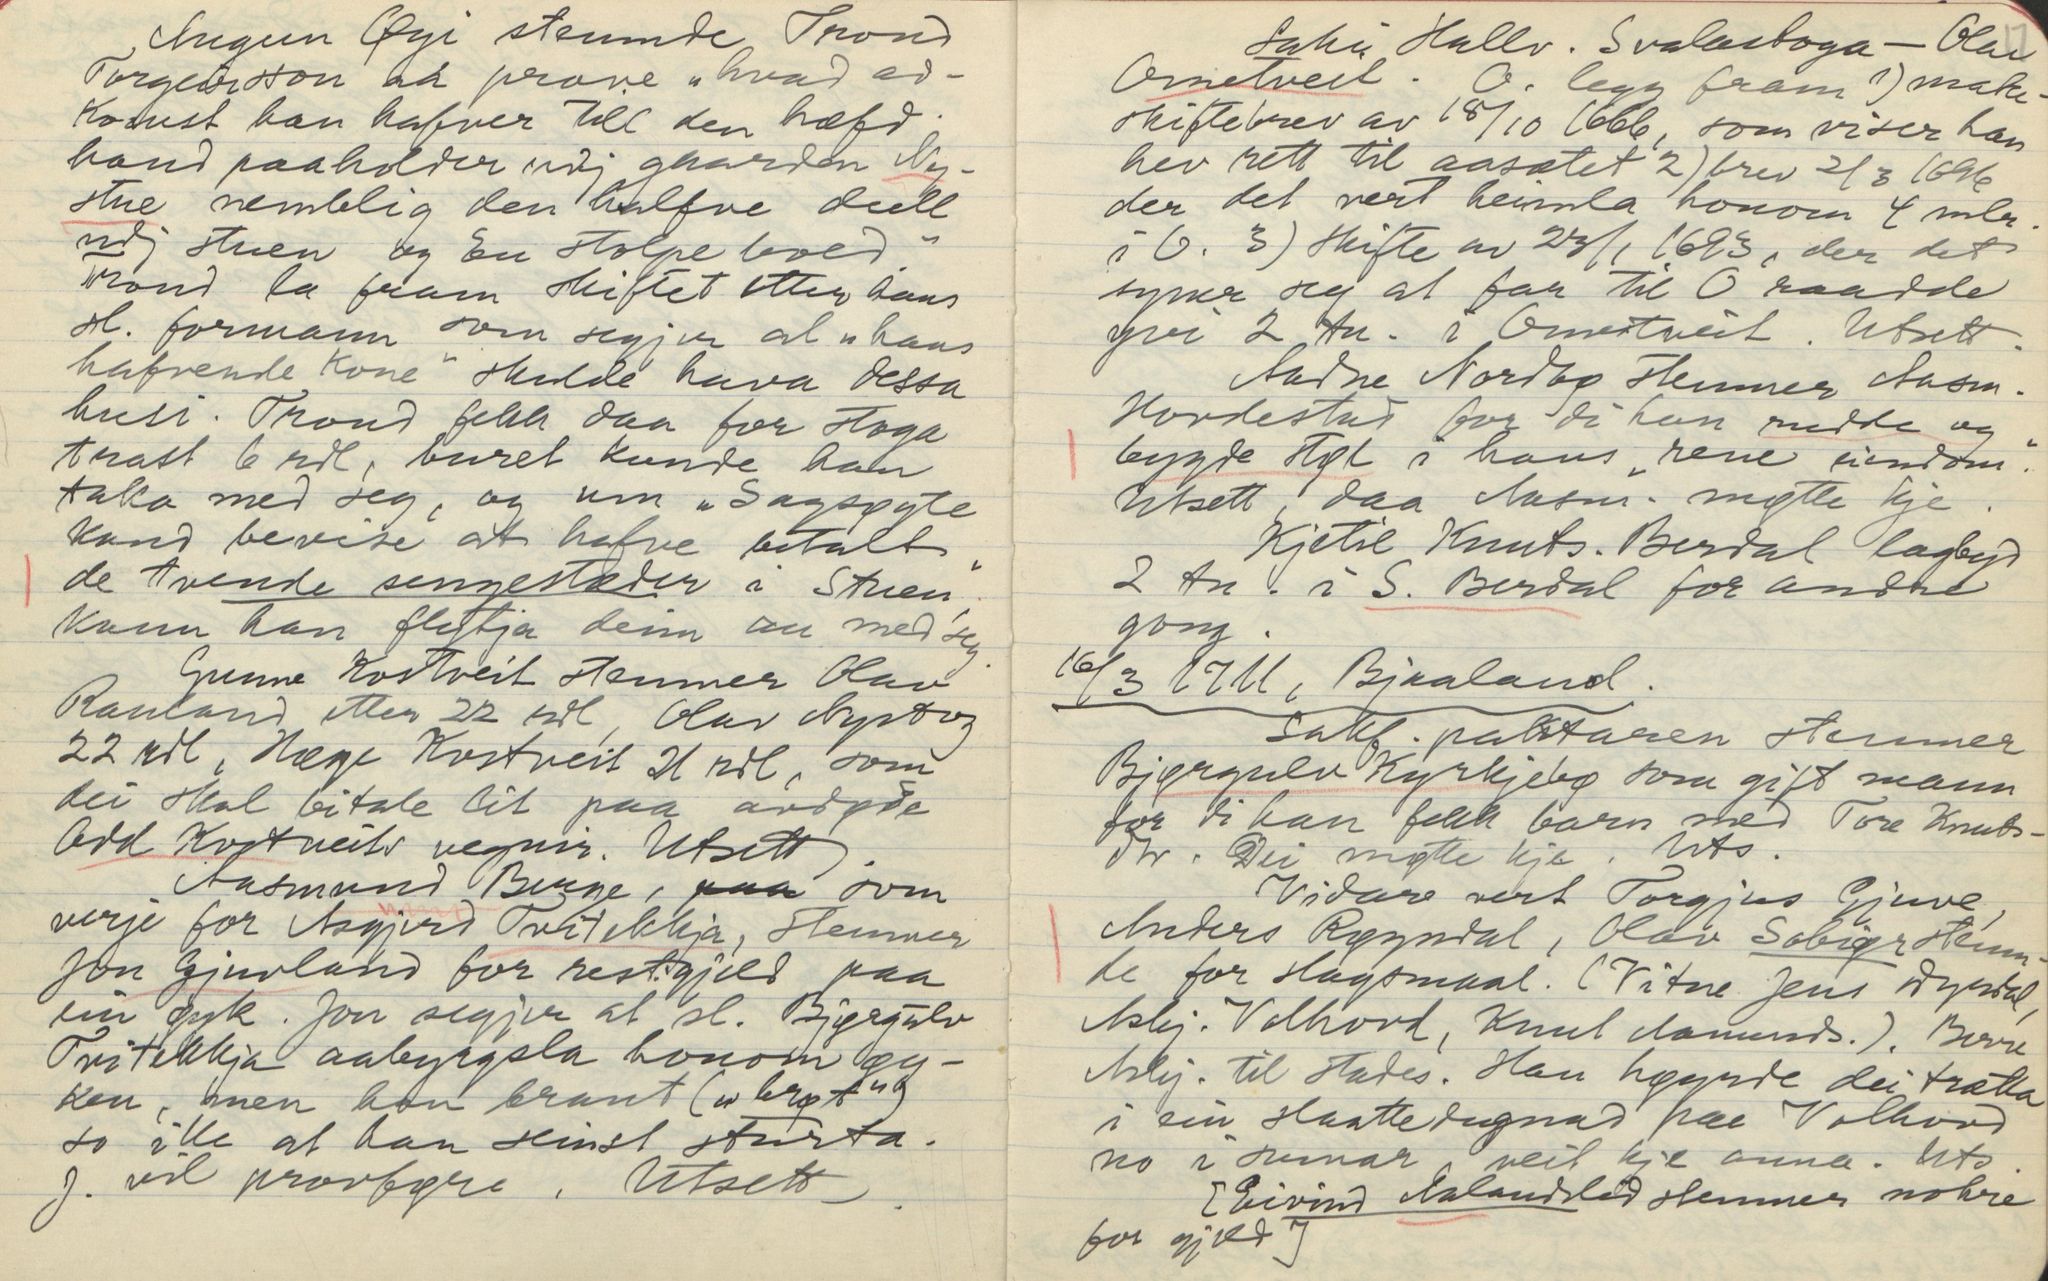 Augun Øyi stemnde Trond
Torgeirsson aa prove „hvad ad-
komst han hafver till den hæfd
hand paaholder udj gaarden Ny-
stue nemblig den halfve deell
udj stuen og En stolpe boed."
Trond la fram skiftet etter hans
sl. formann som segjer at „hans
hafvende Kone" skulde hava dessa
husi. Trond fekk daa for stoga
trast 6 rdl, buret kunde han
taka med seg, og um „Sagsøgte
kand bevise at hafve betalt
de tvende sengestæder i Stuen"
kann han flytja deim au med seg.
Gunne Kostveit stemner Olav
Rauland etter 22 rdl, Olav Nystog
22 rdl, Hæge Kostveit 21 rdl, som
dei skal bitale lit paa avdøde
Odd Kostveits vegner. Utsett.
Aasmund Berge, som
verje for Asgjerd Tvitekkja, stemner
Jon Gjuvland for restgjeld paa
ein øyk. Jon segjer at sl. Bjørgulv
Tvitekkja aabyrgsla honom øy-
ken, men han braut („brøt")
so ille at han seinst stürta.
J. vil provføre. Utsett.
17
Saki Hallv. Svalastoga — Olav
Ometveit. O. legg fram 1) make-
skiftebrev av 18/10 1666, som viser han
hev rett til aasætet 2) brev 2/3 1696
der det vert heimla honom 4 mlr.
i O. 3) Skifte av 23/1 1693, der det
syner seg at far til O raadde
yvi 2 tn. i Omtveit. Utsett.
Aadne Nordbø stemner Aasm.
Hovdestad for di han rudde og
bygde støl i hans „rene eiendom".
Utsett, daa Aasm. møtte kje.
Kjetil Knuts. Berdal lagbyd
2 tn. i S. Berdal for andre
gong.
16/3 1711, Bjaaland.
Sakf. paktaren stemner
Bjørgulv Kyrkjebø som gift mann
for di han fekk barn med Tore Knuts-
dtr. Dei møtte kje. Uts.
Vidare vert Torgjus Gjuve,
Anders Røyndal, Olav Sobiør stemn-
de for slagsmaal. (Vitne Jens Dyrdal,
Asbj. Volhovd, Knut Aamunds.). Berre
Asbj. til stades. Han høyrde dei trætta
i ein slaattedugnad paa Volhovd
no i sumar, veit kje anna. Uts.
[Eivind Aalandslid stemner nokre
for gjeld]